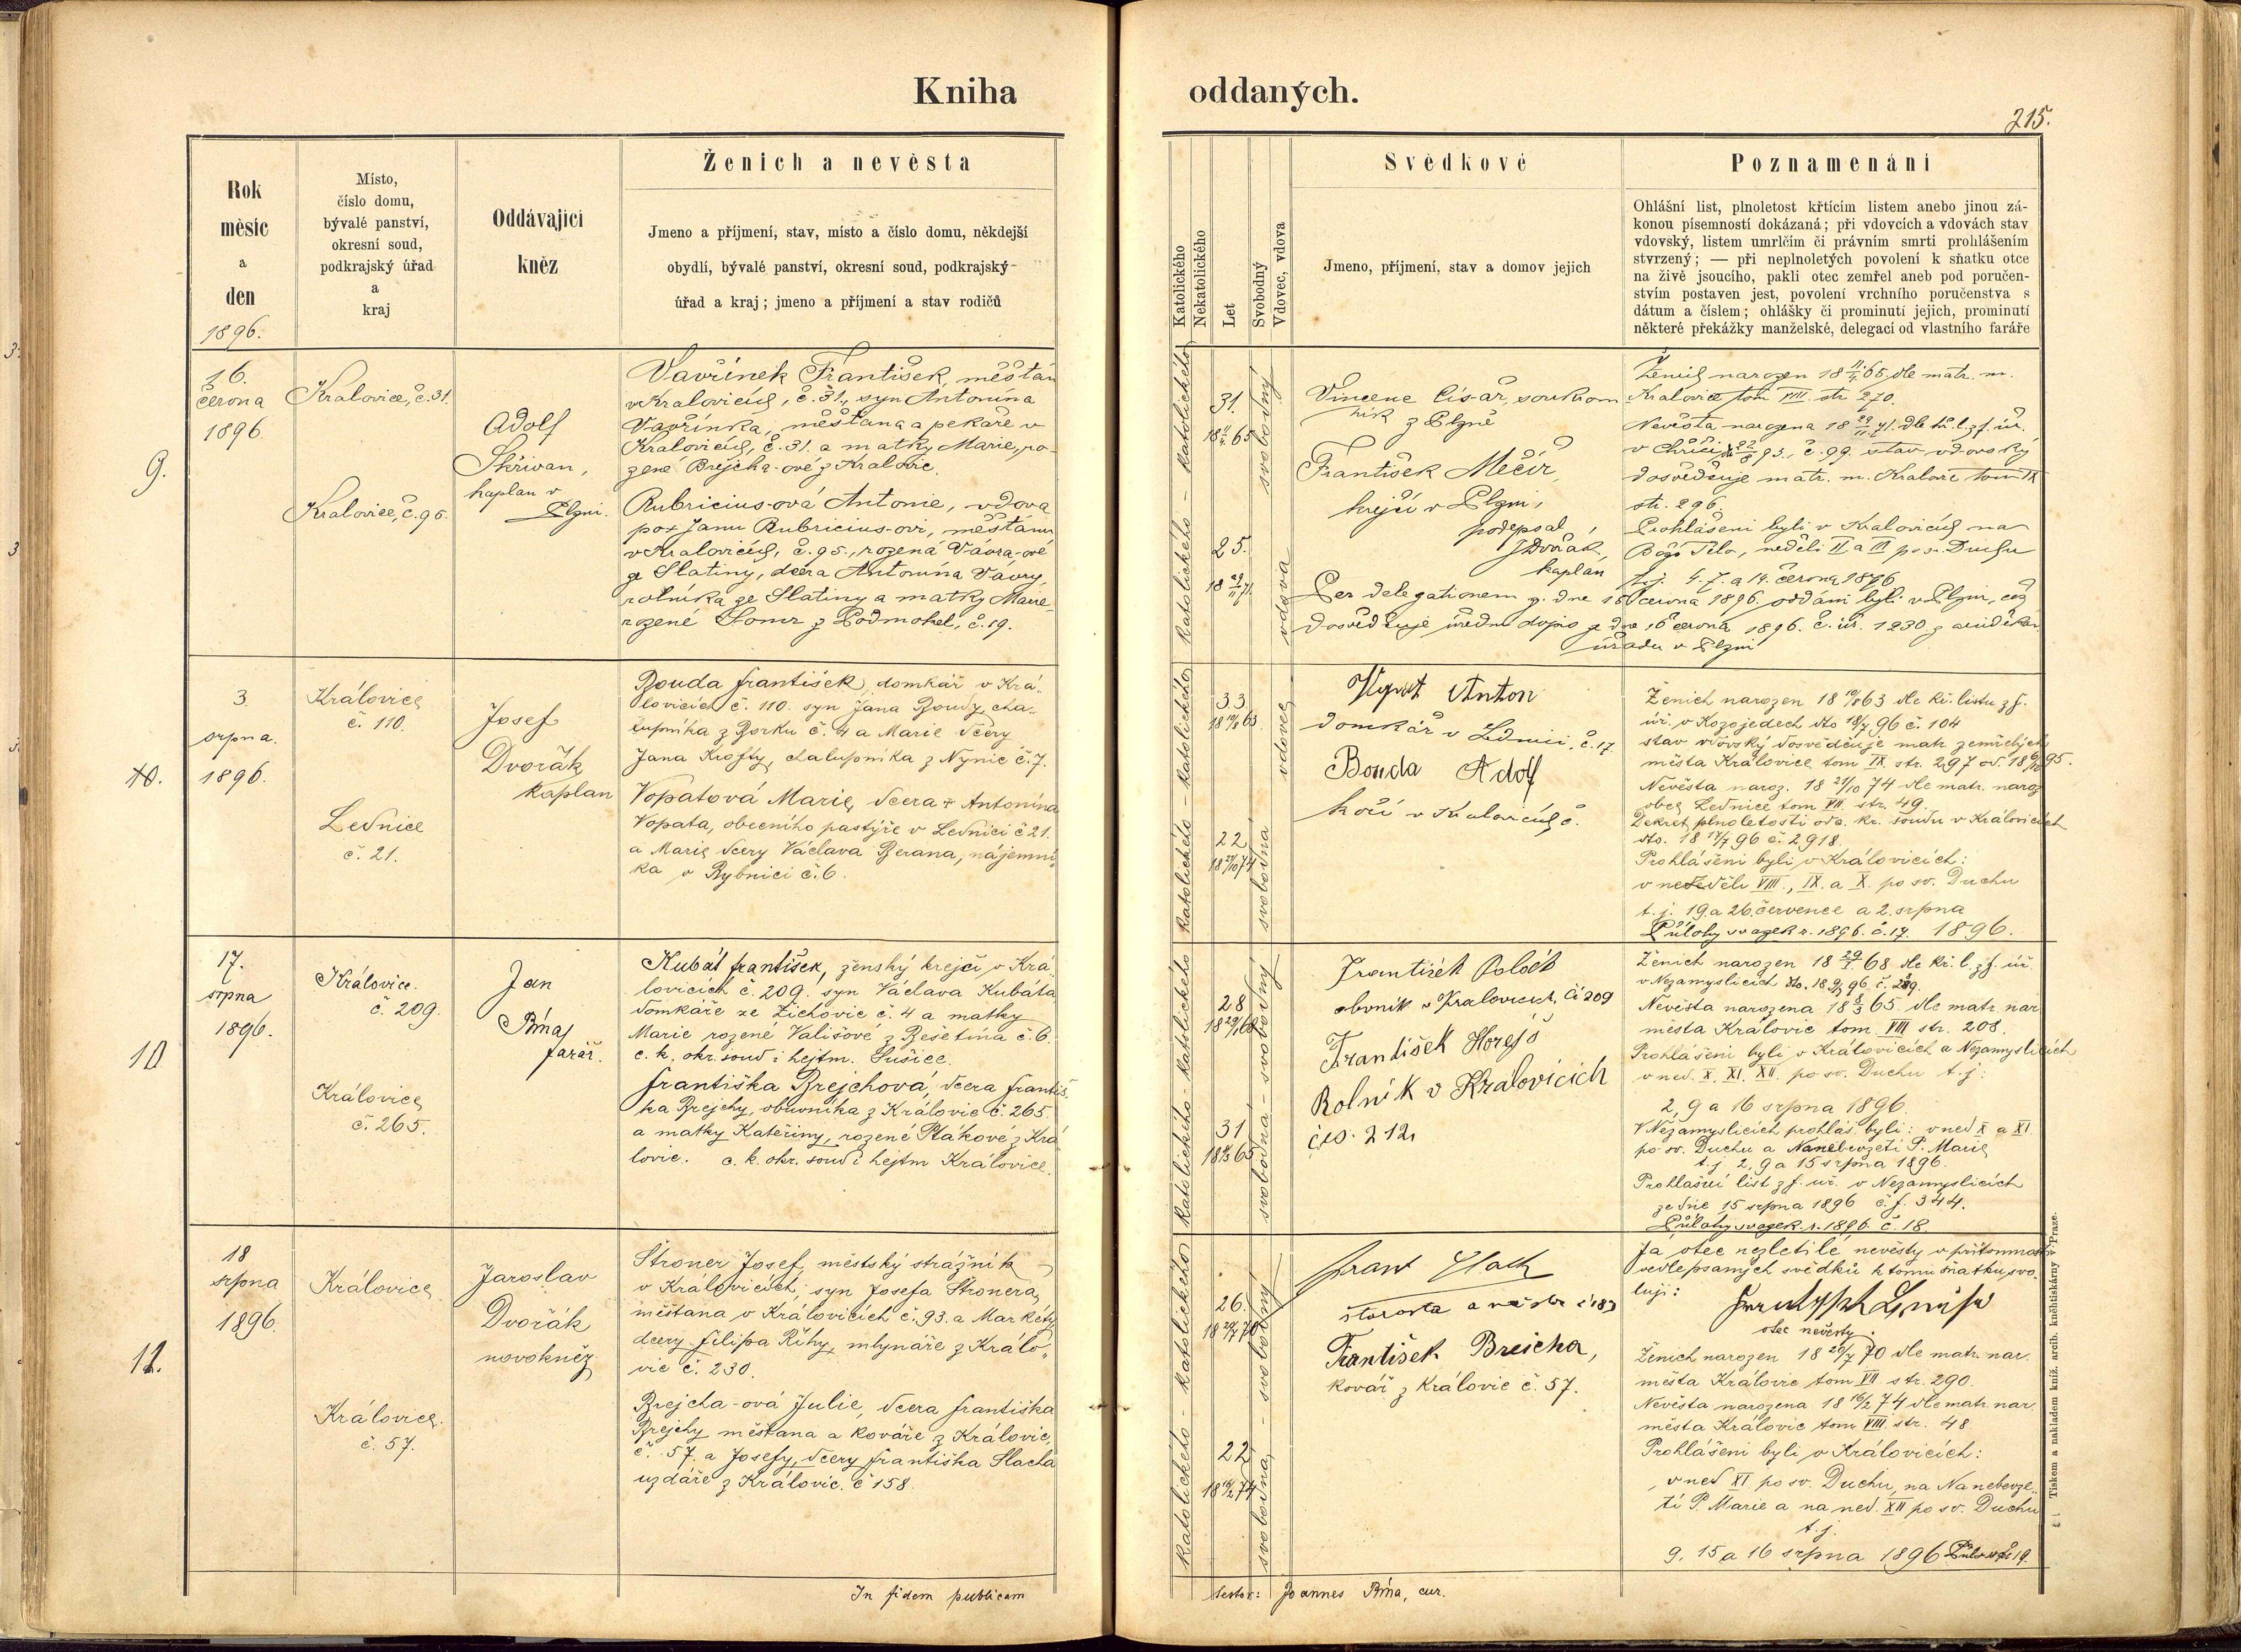 Kniha
oddaných.
215.
Rok
měsíc
a
den
1896.
Místo,
číslo domu,
bývalé panství,
okresní soud,
podkrajský úřad
a
kraj
Oddávající
kněz
Ženich a nevěsta
Jmeno a příjmení, stav, místo a číslo domu, někdejší
obydlí, bývalé panství, okresní soud, podkrajský
úřad a kraj; jmeno a příjmení a stav rodičů
Katolického
Nekatolického
Let
Svobodný
Vdovec, vdova
Svědkové
Jmeno, příjmení, stav a domov jejich
Poznamenání
Ohlášní list, plnoletost křtícím listem anebo jinou zá-
konou písemností dokázaná; při vdovcích a vdovách stav
vdovský, listem umrlčím či právním smrti prohlášením
stvrzený; — při neplnoletých povolení k sňatku otce
na živě jsoucího, pakli otec zemřel aneb pod poručen-
stvím postaven jest, povolení vrchního poručenstva s
dátum a číslem; ohlášky či prominutí jejich, prominutí
některé překážky manželské, delegací od vlastního faráře
9.
16.
června
1896
Kralovice, č. 31.
Kralovice, č. 95.
Adolf
Skřivan,
kaplan v
Plzni.
Vavřínek František, měšťan
v Kralovicích, č. 31., syn Antonína
Vavřínka, měšťana a pekaře v
Kralovicích, č. 31. a matky Marie, ro-
zené Brejcha-ové z Kralovic.
Rubricius-ová Antonie, vdova
po † Janu Rubricius-ovi, měšťanu
v Kralovicích, č. 95., rozená Vávra-ové
ze Slatiny, dcera Antonína Vávry,
rolníka ze Slatiny a matky Marie
rozené z Podmokel, č. 19.
katolického - katolického
31.
18 11/4 65
svobodný
25.
18 29/11 71
vdova
Vincenc Císař, soukrom
ník z Plzně
František Mečíř,
krejčí v Plzni,
podepsal
J Dvořák,
kaplan
Ženich narozen 18 11/4 65 dle matr. m.
Kralovic tom VIII. str. 270.
Nevěsta narozena 18 29/11 71. dle kř. l. z f. úř.
v Chříči č. 99. stav vdovský
dosvědčuje matr. m. Kralovic tom IX
str. 296.
Prohlášeni byli v Kralovicích na
Boží Tělo, neděli II a III po sv. Duchu
t. j. 4. 7. a 14. června 1896
Per delegationem z dne 16 června 1896. oddáni byli v Plzni, což
dosvědčuje úřední dopis z dne 16 června 1896. č. úř. 1230 z
úřadu v Plzni
10.
3.
srpna.
1896.
Královice
č. 110.
Lednice
č. 21.
Josef
Dvořák
kaplan
Bouda František, domkář v Krá-
lovicích č. 110. syn Jana Boudy, cha-
lupníka z Borku č. 4 a Marie dcery
Jana Krofty, chalupníka z Nynic č. 7.
Vopatová Marie, dcera † Antonína
Vopata, obecního pastýře v Lednici č 21.
a Marie dcery Václava Berana, nájemní-
ka v Rybnici č. 6.
katolického - katolického
33
18 19/8 63.
vdovec
22
18 21/10 74
svobodná
Anton
domkář v Lednici, č. 17
Bouda Adolf
kočí v Kralovicích č.
Ženich narozen 18 19/8 63 dle kř. listu z f.
úř. v Kozojedech dto 18/7 96 č. 104
stav vdovský dosvědčuje matr. zemřelých
města Královice tom IX. str. 297
Nevěsta naroz. 18 21/10 74 dle matr. naroz
obce Lednice tom VII. str. 49.
Dekret plnoletosti od c. kr. soudu v Královicích
dto. 18 17/7 96 č. 2918.
Prohlášeni byli v Královicích:
v neděli VIII., IX. a X. po sv. Duchu
t. j. 19. a 26. července a 2. srpna
Přílohy svazek r. 1896. č. 17. 1896.
10
17.
srpna
1896.
Královice.
č. 209.
Královice
č. 265.
Jan
Říha,
farář.
Kubát František, ženský krejčí v Krá-
lovicích č. 209. syn Václava Kubáta
domkáře ze Žichovic č. 4 a matky
Marie rozené Vališové z Bešetína č. 6.
c. k. okr. soud i hejtm. Sušice.
Františka Brejchová, dcera Františ-
ka Brejchy, obuvníka z Královic č. 265
a matky Kateřiny, rozené Ptákové z Krá-
lovic. c. k. okr. soud i hejtm Královice.
katolického - katolického
28
18 29/1 68
svobodný
31
18 8/3 65
svobodná
František
obuvník v Kralovicích, Či 209
František Horejš
Rolník v Kralovicích
čís. 212.
Ženich narozen 18 29/1 68 dle kř. l. z f. úř.
v Nezamyslicích
Nevěsta narozena 18 8/3 65 dle matr nar
města Královic tom. VIII str. 208.
Prohlášeni byli v Královicích a Nezamyslicích
v ned. X. XI. XII. po sv. Duchu t. j:
2, 9 a 16 srpna 1896.
V Nezamyslicích prohláš. byli: v ned X a XI.
po sv. Duchu a Nanebevzetí P. Marie
t. j. 2, 9 a 15 srpna 1896.
Prohlášní list z f. úř. v Nezamyslicích
ze dne 15 srpna 1896 č. j. 344.
Přílohy svazek r. 1896. č. 18.
11.
18
srpna
1896
Královice
Královice.
č. 57.
Jaroslav
Dvořák
novokněz
Štroner Josef, městský strážník
v Královicích, syn Josefa Štronera,
měšťana v Královicích č. 93. a Markéty
dcery Filipa Říhy, mlynáře z Králo-
vic č. 230.
Brejcha-ová Julie, dcera Františka
Brejchy měšťana a kováře z Královic,
č. 57. a Josefy, dcery Františka Slacha
uzdáře z Královic. č 158.
katolického - katolického
26.
18 20/7 70
svobodný
22
18 16/2 74
svobodná
Frant
starosta a
František Brejcha,
kovář z Královic č. 57.
Já otec nezletilé nevěsty v přítomnosti
vedlepsaných svědků k tomu sňatku svo-
luji:
otec nevěsty.
Ženich narozen 18 20/7 70 dle matr. nar.
města Královic tom VII str. 290.
Nevěsta narozena 18 16/2 74 dle matr. nar.
města Královic tom VIII. str. 48
Prohlášeni byli v Královicích:
v ned XI po sv. Duchu, na Nanebevze-
tí P. Marie a na ned. XII po sv. Duchu
t. j.
9, 15 a 16 srpna 1896
In fidem publicam
testor: Joannes Říha, cur.
Tiskem a nakladem kníž. arcib. knihtiskárny v Praze.